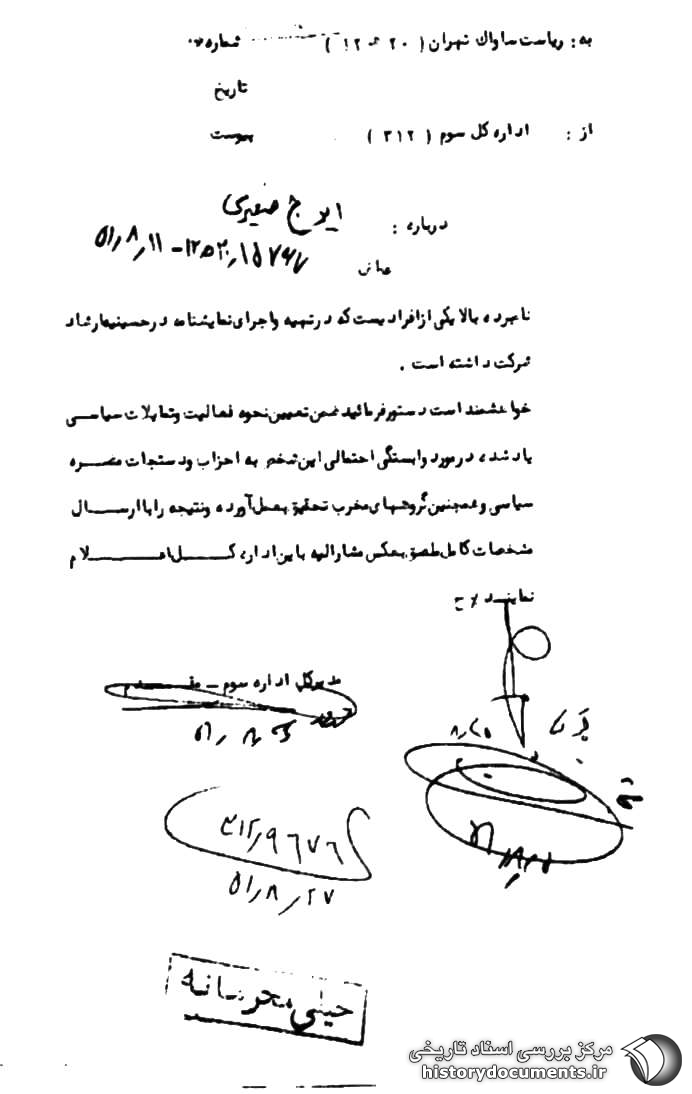 به : ریاست ساواک تهران ( ۲۰ ه ۱۲ ) شماره
تاریخ
از : اداره کل سوم ( ۳۱۲ ) پیوست
درباره : ایرج صغیری
۱۵۷۶۷/۲۰ ه ۱۲ - ۵۱/۸/۱۱
نامبرده بالا یکی از افرادیست که در تهیه و اجرای نمایشنامه در حسینیه ارشاد
شرکت داشته است .
خواهشمند است دستور فرمائید ضمن تعیین نحوه فعالیت و تمایلات سیاسی
یاد شده ، در مورد وابستگی احتمالی این شخص به احزاب و دستجات مضره
سیاسی و همچنین گروههای مخرب تحقیق بعمل آورده و نتیجه را با ارسال
مشخصات کامل ملصق بعکس مشارالیه باین اداره کل اعلام
نمایند
مدیرکل اداره سوم - مقدم
۳۱۲/۹۶۷۶
۵۱/۸/۲۷
خیلی محرمانه
مرکز بررسی اسناد تاریخی
historydocuments.ir